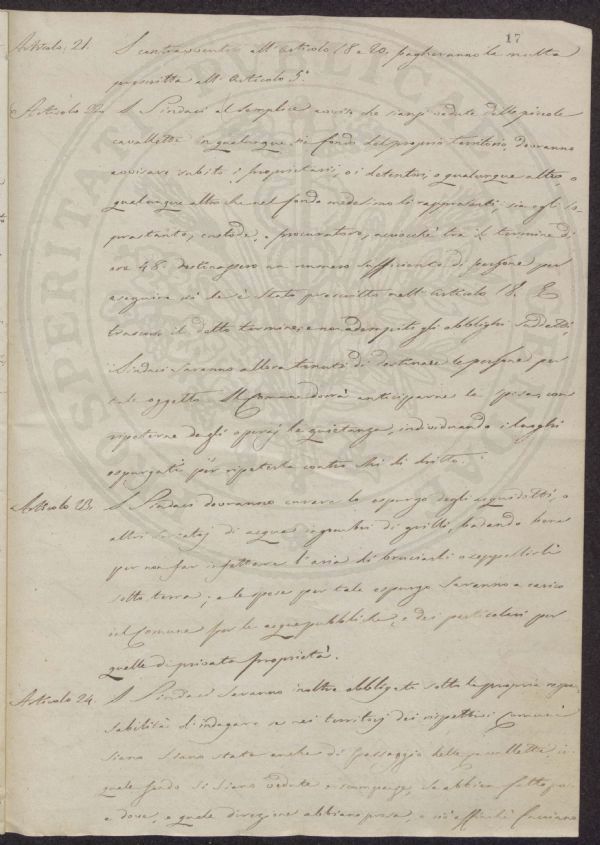 17
Articolo 21. I contravventori all'Articolo 18 e 20. pagheranno la multa
prescritta all'Articolo 5°
Articolo 22. I Sindaci al semplice avviso che siansi vedute delle piccole
cavallette in qualunque sia fondo del proprio territorio, dovranno
avvisare subito i proprietarii, o i detentori, o qualunque altro, o
qualunque altro che nel fondo medesimo li rappresenti, sia egli so-
prastante, custode, o procuratore, acciocchè tra il termine di
ore 48. destinassero un numero sufficiente di persone per
eseguire ciò che è stato prescritto nell'Articolo 18. E
trascorso il detto termine, e non adempiti gli obblighi suddetti,
i Sindaci saranno allora tenuti di destinare le persone per
tale oggetto. Il Comune dovrà anticiparne le spese, con
ripeterne degli operaj le quietanze, individuando i luoghi
espurgati per ripeterla contro chi di dritto.
Articolo 23. I Sindaci dovranno curare lo espurgo degli acquidotti, o
altri di acqua ingombri di grilli, badando bene
per non far infettare l'aria di bruciarli o seppellirli
sotto terra; e le spese per tale espurgo saranno a carico
del Comune per le acque pubbliche, e dei particolari per
quelle di privata proprietà.
Articolo 24. I Sindaci saranno inoltre obbligati sotto la propria respon-
sabilità d'indagare se nei territorj dei rispettivi Comuni
siano state anche di passaggio delle cavallette, in
quale fondo si siano vedute, se abbian fatto
e dove, e quale direzione abbiano presa, e ciò affinchè facciano